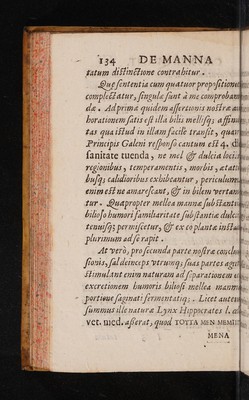 134 DE MANNA
tatum distinctione contrahitur.
Que sententia cum quatuor propositione
complectatur, singulæ sunt à me comproban
dæ. Ad primæ quidem assertionis nostræ au
horationem satis est illa bilis mellisq; affini
tas qua istud in illam facilè transit, quar
Principis Galeni responso cantum est 4. d
sanitate tuenda, ne mel & dulcia locis
regionibus, temperamentis, morbis, ætati
busq; calidioribus exhibeantur, periculum
enim est ne amarescant, & in bilem vertam
tur. Quapropter mellea mannæ substanti
bilioso humori familiaritate substantiæ dulci
tenuisq; permiscetur, & ex eo planta instar
plurimum ad se rapit.
At verò, pro secunda parte nostræ conclu
sionis, sal deinceps utrumq; suas partes agit
stimulant enim naturam ad separationem e
excretionem humoris biliosi mellea mannæ
portione saginati fermentatiq;. Licet autem
summus ille naturæ Lynx Hippocrates l. de
vet. med. asserat, quod TOTTA MEN MEMIT
MENA